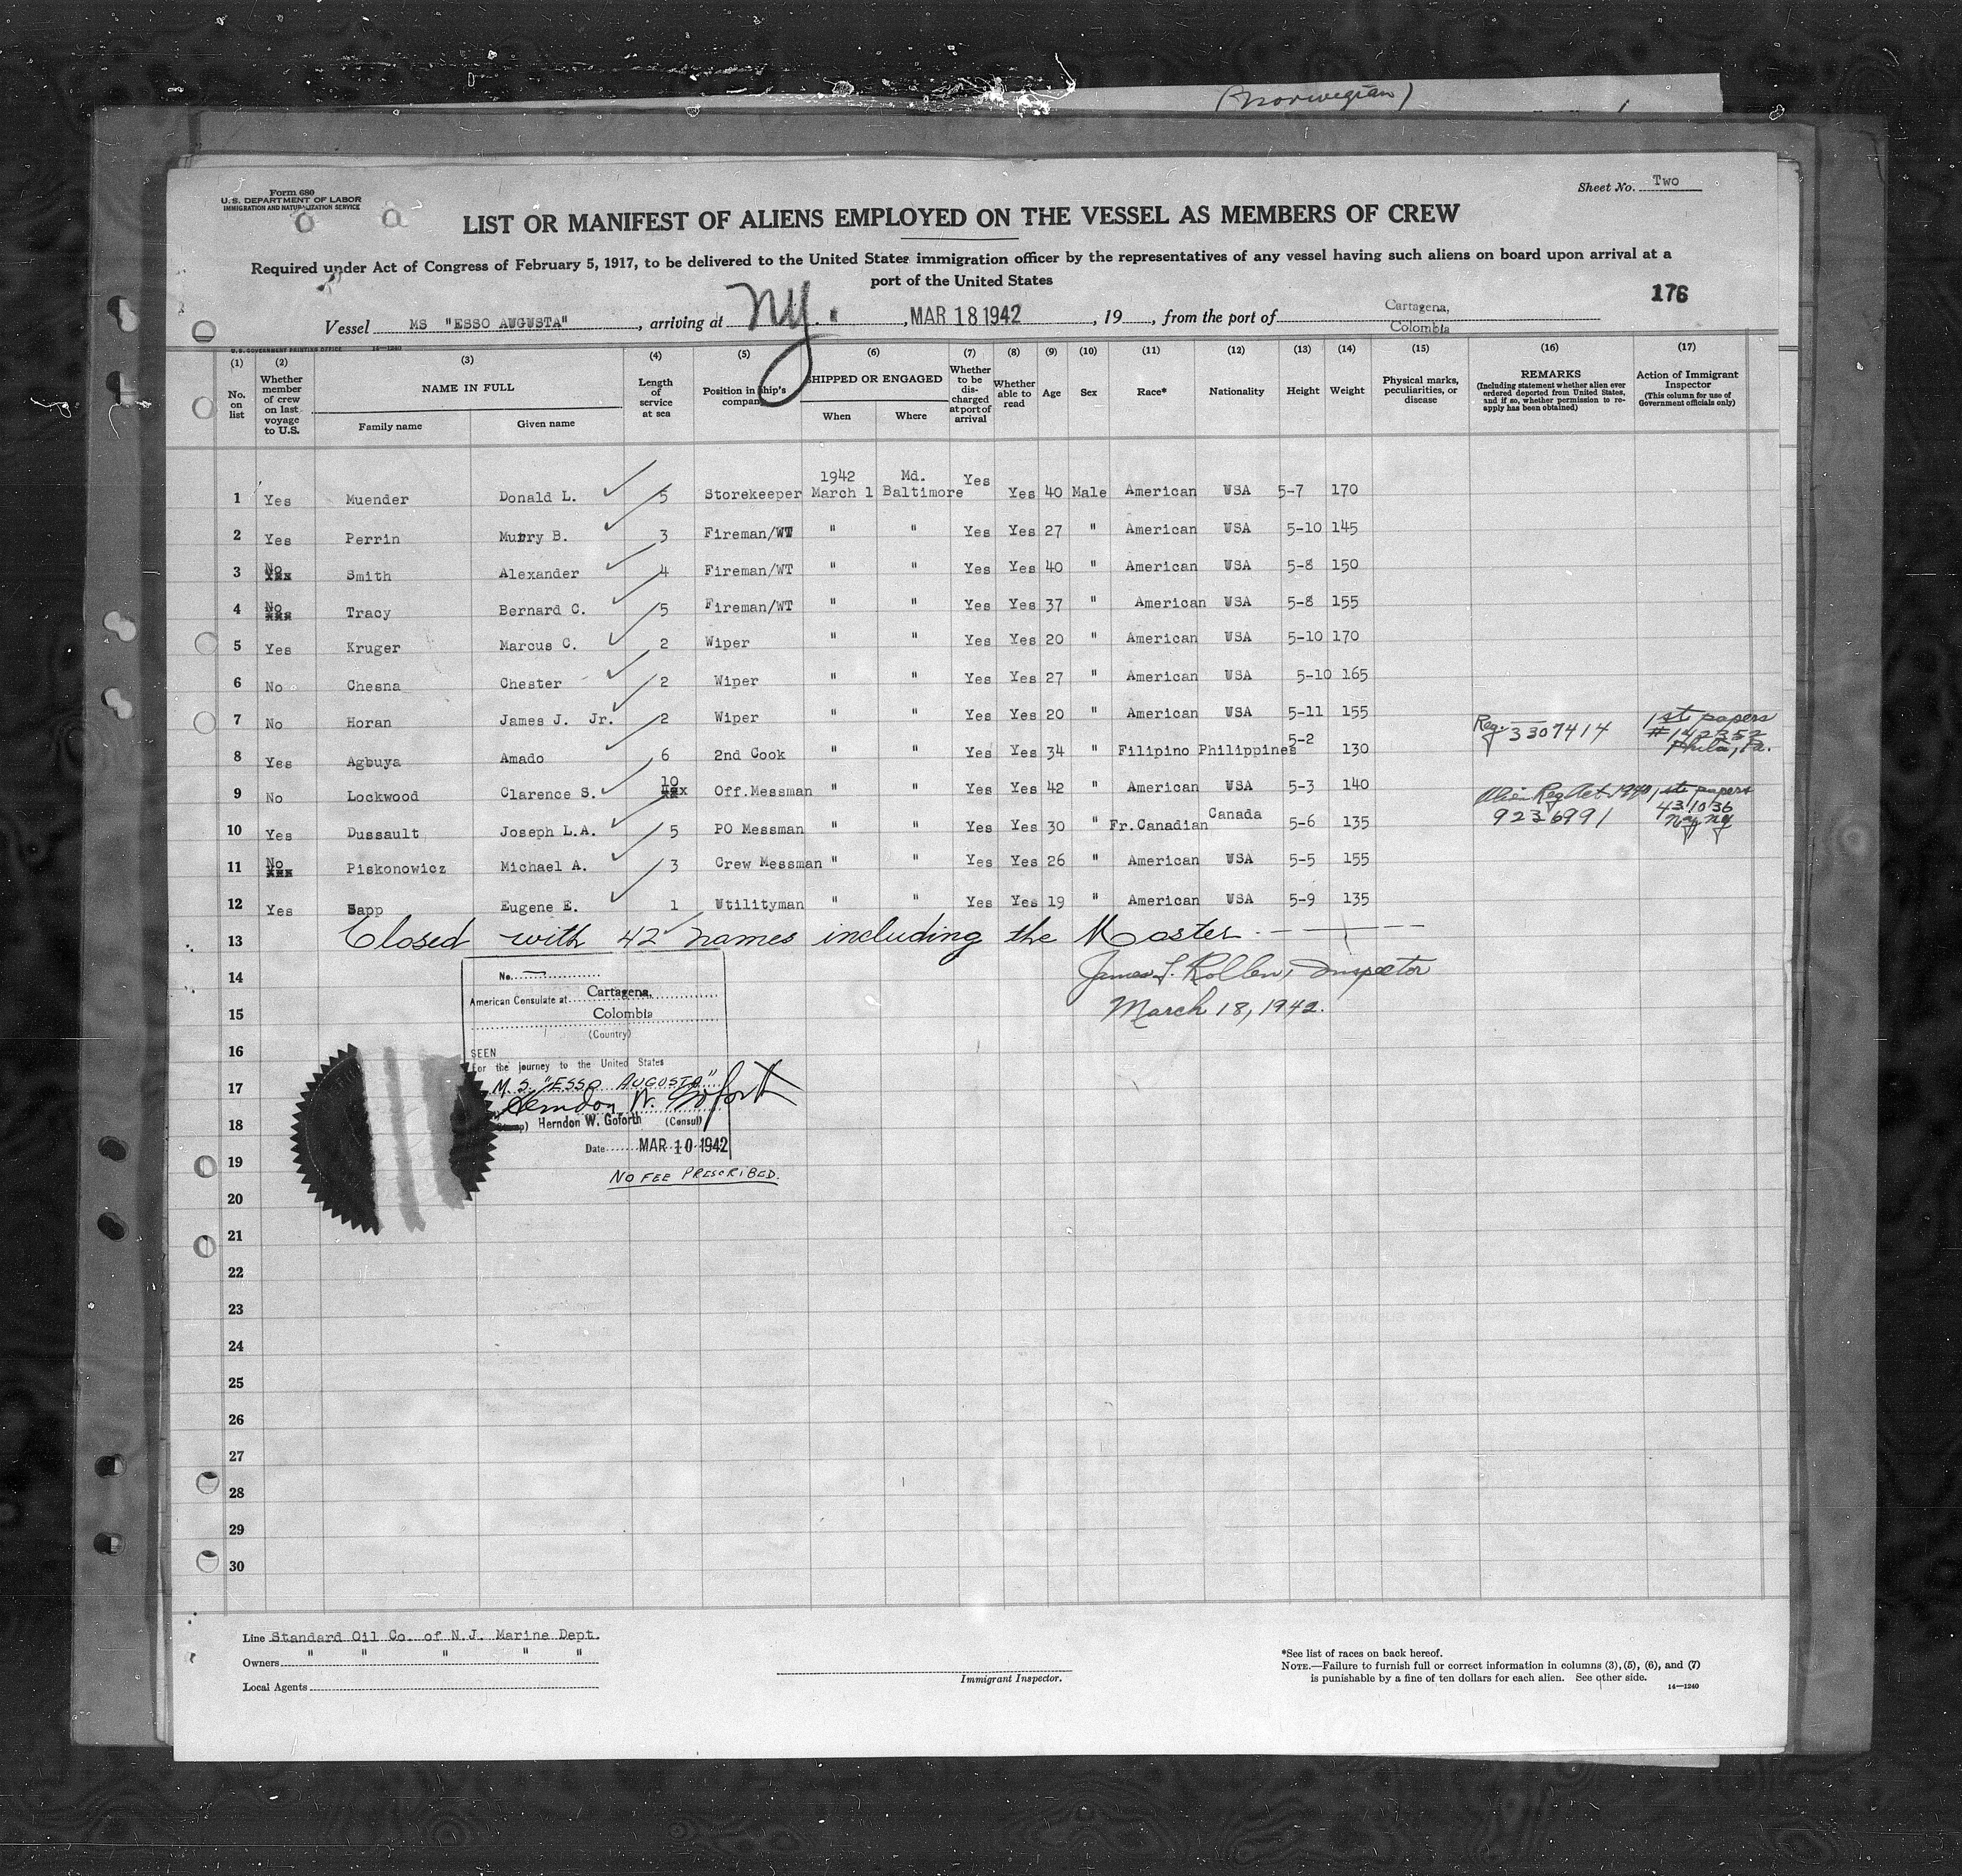 (Norwegian)
Form 680
U.S. DEPARTMENT OF LABOR
IMMIGRATION AND NATURALIZATION SERVICE
Sheet No. Two
LIST OR MANIFEST OF ALIENS EMPLOYED ON THE VESSEL AS MEMBERS OF CREW
Required under Act of Congress of February 5, 1917, to be delivered to the United States immigration officer by the representatives of any vessel having such aliens on board upon arrival at a
port of the United States
176
Vessel MS "ESSO AUGUSTA", arriving at NY., MAR 18 1942, 19, from the port of Cartagena, Colombia
U.S. GOVERNMENT PRINTING OFFICE 14—1240
(1) (2) (3) (4) (5) (6) (7) (8) (9) (10) (11) (12) (13) (14) (15) (16) (17)
No. on list
Whether member of crew on last voyage to U.S.
NAME IN FULL
Family name Given name
Length of service at sea
Position in ship's company
SHIPPED OR ENGAGED
When Where
Whether to be discharged at port of arrival
Whether able to read
Age Sex Race* Nationality Height Weight
Physical marks, peculiarities, or disease
REMARKS
(Including statement whether alien ever ordered deported from United States, and if so, whether permission to re-apply has been obtained)
Action of Immigrant Inspector
(This column for use of Government officials only)
1942 Md.
1 Yes Muender Donald L. 5 Storekeeper March 1 Baltimore Yes Yes 40 Male American USA 5-7 170
2 Yes Perrin Murry B. 3 Fireman/WT " " Yes Yes 27 " American USA 5-10 145
3 No Smith Alexander 4 Fireman/WT " " Yes Yes 40 " American USA 5-8 150
4 No Tracy Bernard C. 5 Fireman/WT " " Yes Yes 37 " American USA 5-8 155
5 Yes Kruger Marcus C. 2 Wiper " " Yes Yes 20 " American USA 5-10 170
6 No Chesna Chester 2 Wiper " " Yes Yes 27 " American USA 5-10 165
7 No Horan James J. Jr. 2 Wiper " " Yes Yes 20 " American USA 5-11 155
8 Yes Agbuya Amado 6 2nd Cook " " Yes Yes 34 " Filipino Philippines 5-2 130 Reg. 3307414 1st papers #142352 Phila, Pa.
9 No Lockwood Clarence S. 10 Off.Messman " " Yes Yes 42 " American USA 5-3 140
10 Yes Dussault Joseph L.A. 5 PO Messman " " Yes Yes 30 " Fr.Canadian Canada 5-6 135 Alien Reg Act 1940 9236991 1st papers 431036 NY NY
11 No Piskonowicz Michael A. 3 Crew Messman " " Yes Yes 26 " American USA 5-5 155
12 Yes Sapp Eugene E. 1 Utilityman " " Yes Yes 19 " American USA 5-9 135
13 Closed with 42 names including the Master
14 James Inspector
15 March 18, 1942.
16
17
18
19
20
21
22
23
24
25
26
27
28
29
30
No.
American Consulate at Cartagena,
Colombia
(Country)
SEEN
for the journey to the United States
M.S. "ESSO AUGUSTA"
Herndon W. Goforth
Herndon W. Goforth (Consul)
Date MAR 10 1942
NO FEE PRESCRIBED.
Line Standard Oil Co. of N.J. Marine Dept.
Owners " " " " "
Local Agents
Immigrant Inspector.
*See list of races on back hereof.
NOTE.—Failure to furnish full or correct information in columns (3), (5), (6), and (7)
is punishable by a fine of ten dollars for each alien. See other side.
14—1240